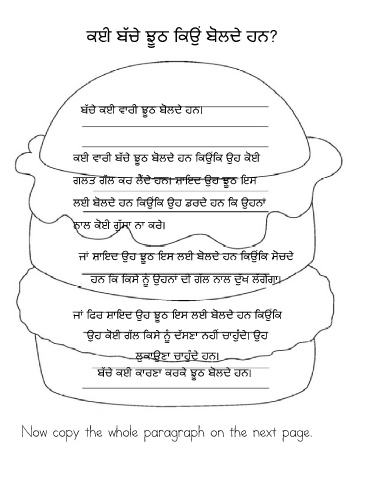 ਕਈ ਬੱਚੇ ਝੂਠ ਕਿਉਂ ਬੋਲਦੇ ਹਨ?
ਬੱਚੇ ਕਈ ਵਾਰੀ ਝੂਠ ਬੋਲਦੇ ਹਨ।
ਕਈ ਵਾਰੀ ਬੱਚੇ ਝੂਠ ਬੋਲਦੇ ਹਨ ਕਿਉਂਕਿ ਉਹ ਕੋਈ
ਗਲਤ ਗੱਲ ਕਰ ਲੈਂਦੇ ਹਨ। ਸ਼ਾਇਦ ਉਹ ਝੂਠ ਇਸ
ਲਈ ਬੋਲਦੇ ਹਨ ਕਿਉਂਕਿ ਉਹ ਡਰਦੇ ਹਨ ਕਿ ਉਹਨਾਂ
ਨਾਲ ਕੋਈ ਗੁੱਸਾ ਨਾ ਕਰੇ।
ਜਾਂ ਸ਼ਾਇਦ ਉਹ ਝੂਠ ਇਸ ਲਈ ਬੋਲਦੇ ਹਨ ਕਿਉਂਕਿ ਸੋਚਦੇ
ਹਨ ਕਿ ਕਿਸੇ ਨੂੰ ਉਹਨਾਂ ਦੀ ਗੱਲ ਨਾਲ ਦੁੱਖ ਲੱਗੇਗਾ।
ਜਾਂ ਫਿਰ ਸ਼ਾਇਦ ਉਹ ਝੂਠ ਇਸ ਲਈ ਬੋਲਦੇ ਹਨ ਕਿਉਂਕਿ
ਉਹ ਕੋਈ ਗੱਲ ਕਿਸੇ ਨੂੰ ਦੱਸਣਾ ਨਹੀਂ ਚਾਹੁੰਦੇ। ਉਹ
ਲੁਕਾਉਣਾ ਚਾਹੁੰਦੇ ਹਨ।
ਬੱਚੇ ਕਈ ਕਾਰਣਾ ਕਰਕੇ ਝੂਠ ਬੋਲਦੇ ਹਨ.
Now copy the whole paragraph on the next page.